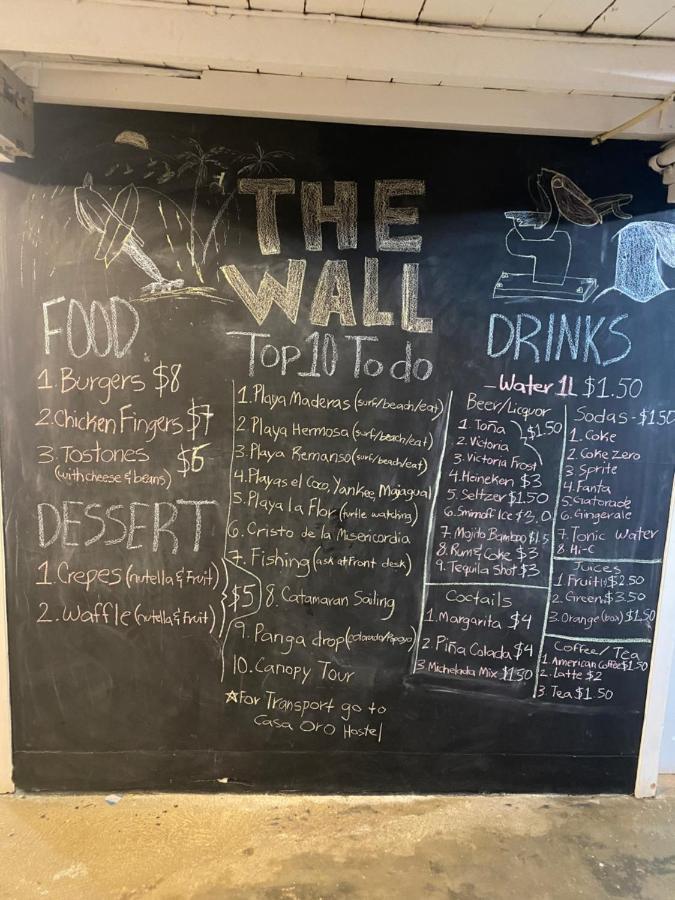 THE
WALL
FOOD
1. Burgers $8
2. Chicken Fingers $7
3. Tostones $6
(with cheese & beans)
DESSERT
1. Crepes (nutella & Fruit)
2. Waffle (nutella & fruit)
$5
Top 10 To do
1. Playa Maderas (surf/beach/eat)
2 Playa Hermosa (surf/beach/eat)
3. Playa Remanso (surf/beach/eat)
4. Playas el Coco, Yankee, Majagual
5. Playa la Flor (turtle watching)
6. Cristo de la Misericordia
7. Fishing (ask at front desk)
8. Catamaran Sailing
9. Panga drop (colorado/Popoyo)
10. Canopy Tour
☆For Transport go to
Casa Oro Hostel
DRINKS
- Water 1L $1.50
Beer/Liquor
1. Toña
2. Victoria
$1.50
3. Victoria Frost
4. Heineken $3
5. Seltzer $1.50
6. Smirnoff Ice
7. Mojito Bamboo
8. Rum & Coke $3
9. Tequila Shot $3
Coctails
1. Margarita $4
2. Piña Colada $4
3 Michelada Mix $1.50
Sodas - $1.50
1. Coke
2. Coke Zero
3. Sprite
4. Fanta
5. Gatorade
6. Gingerale
7. Tonic Water
8. Hi-C
Juices
1 Fruit $2.50
2. Green $3.50
3. Orange (box) $1.50
Coffee/Tea
1. American Coffee $1.50
2. Latte $2
3. Tea $1.50